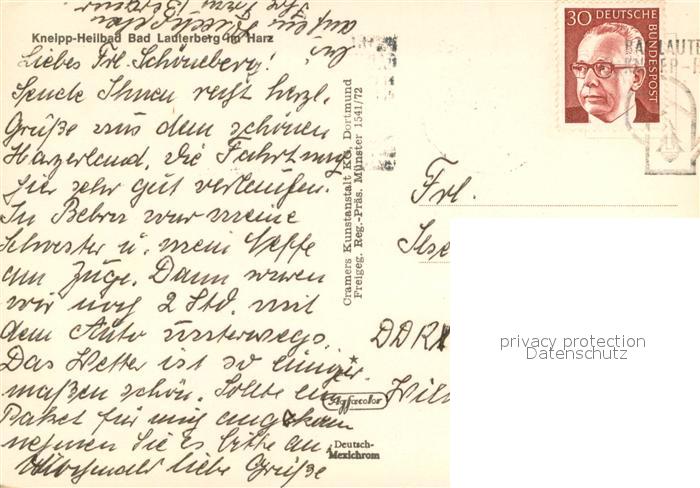 Kneipp-Heilbad Bad Lauterberg im Harz
Liebes Frl. Schöneberg!
Sende Ihnen recht herzl.
Grüße aus dem schönen
Harzerland. Die Fahrt
hier sehr gut verlaufen.
In Bebra war meine
Schwester u. mein Neffe
am Zuge. Dann waren
wir noch 2 Std. mit
dem Auto unterwegs.
Das Wetter ist so einiger
maßen schön. Sollte ein
Paket für mich
nehmen Sie es bitte an.
Nochmals liebe Grüße
auf ein
Ihre Frau
Cramers Kunstanstalt KG, Dortmund
Freigeg. Reg.-Präs. Münster 1541/72
Agfacolor
Deutsch-
Mexichrom
30 DEUTSCHE
BUNDESPOST
BAD LAUTE
Frl.
DDR
privacy protection
Datenschutz